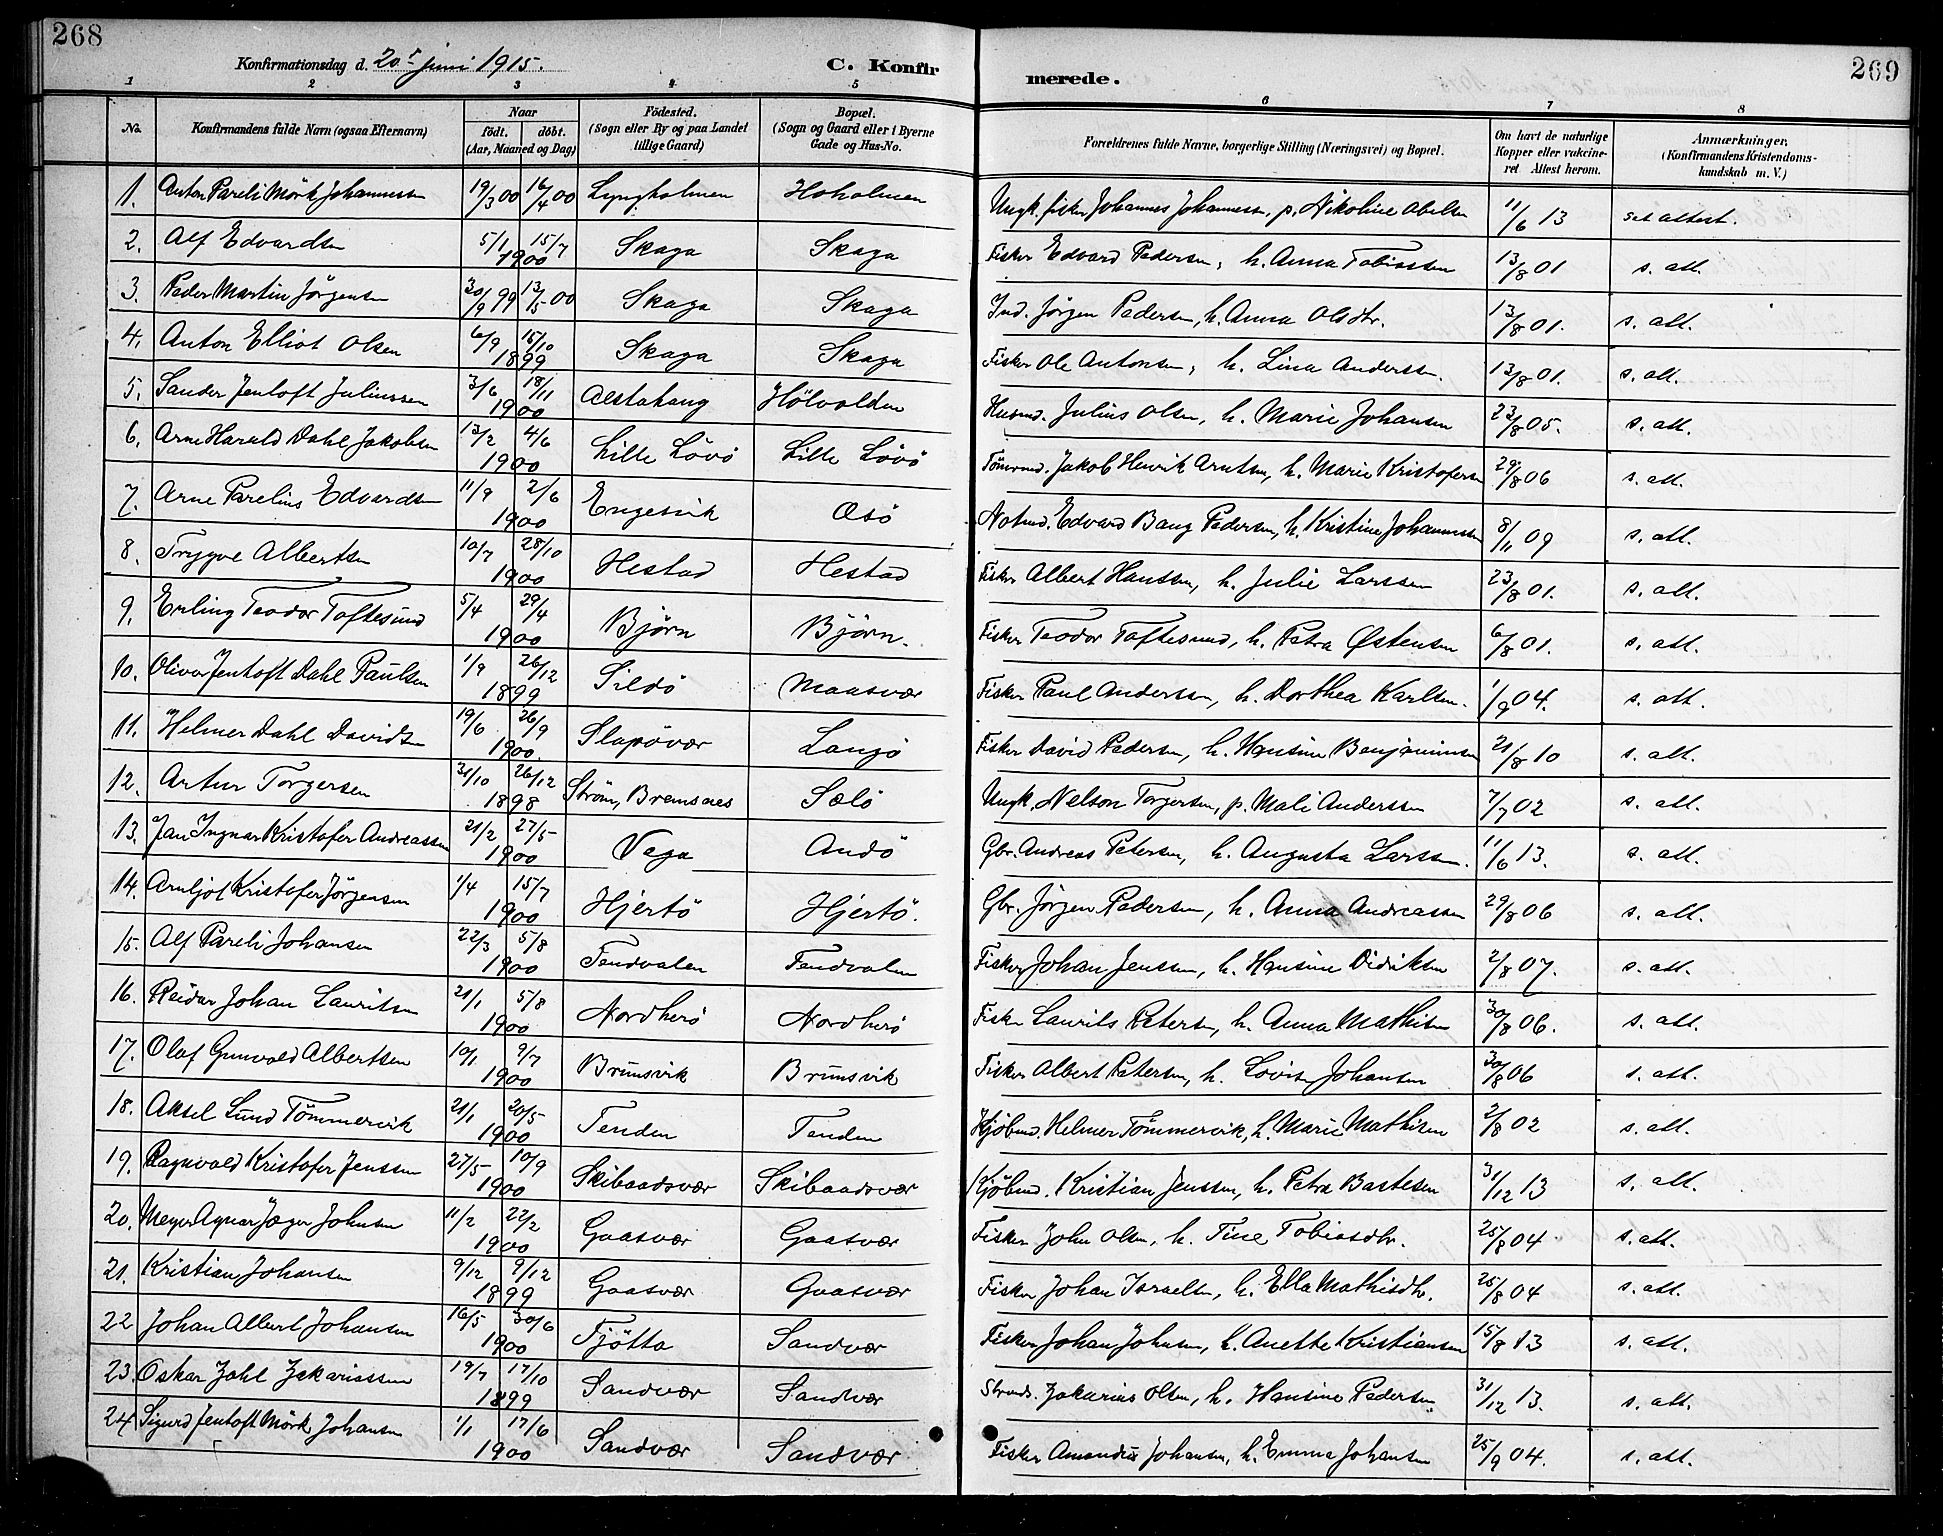 268
Konfirmationsdag d. 20de juni 1915.
C. Konfirmerede.
269
1 2 3 4 5 6 7 8
No. | Konfirmandens fulde Navn (ogsaa Efternavn) | Naar födt. döbt. (Aar, Maaned og Dag) | Födested. (Sogn eller By og paa Landet tillige Gaard) | Bopæl. (Sogn og Gaard eller i Byerne Gade og Hus-No. | Forældrenes fulde Navne, borgerlige Stilling (Næringsvei) og Bopæl. | Om havt de naturlige Kopper eller vakcineret Attest herom. | Anmærkninger. (Konfirmandens Kristendomskundskab m. V.)
1. Anton Pareli Mörk Johannessen 19/3 00 16/4 00 Lyngholmen Hoholmen Ungk. fisker Johannes Johannessen, p. Nikoline Abelsen 11/6 13 set attest.
2. Alf Edvardsen 5/1 15/7 1900 Skaga Skaga Fisker Edvard Pedersen, h. Anna Tobiassen 13/8 01 s. att.
3. Peder Martin Jörgensen 30/9 99 13/5 00 Skaga Skaga Ind. Jörgen Pedersen, h. Anna Olsdtr. 13/8 01. s. att.
4. Anton Elliot Olsen 6/9 15/10 1899 Skaga Skaga Fisker Ole Antonsen, h. Lina Anderssen. 13/8 01. s. att.
5. Sander Jentoft Juliussen 3/6 18/11 1900 Alstahaug Hölvolden Husmd. Julius Olsen, h. Marie Johansen 23/8 05. s. att.
6. Arne Harald Dahl Jakobsen 13/2 4/6 1900 Lille Lövö Lille Lövö Tömmd. Jakob Henrik Arntsen, h. Marie Kristofersen 29/8 06 s. att.
7. Arne Parelius Edvardsen 11/9 2/6 1900 Engesvik Æsö Notmd. Edvard Bang Pedersen, h. Kristine Johannessen 8/11 09 s. att.
8. Trygve Albertsen 10/7 28/10 1900 Hestad Hestad Fisker Albert Hanssen, h. Julie Larssen 23/8 01. s. att.
9. Erling Teodor Toftesund 5/4 29/4 1900 Björn Björn. Fisker Teodor Toftesund, h. Petra Østensen 6/8 01. s. att.
10. Oliver Jentoft Dahl Paulsen 1/9 26/12 1899 Sildö Maasvær Fisker Paul Anderssen, h. Dorthea Karlsen. 1/9 04. s. att.
11. Helmer Dahl Davidsen 19/6 26/9 1900. Slapövær Langö Fisker David Pedersen, h. Hansine Benjaminsen 21/8 10 s. att.
12. Artur Torgersen 31/10 26/12 1898 Ström, Bremsnes Sælö Ungk. Nelson Torgersen, p. Mali Anderssen 7/7 02 s. att.
13. Jan Ingvar Kristofer Andreassen 21/2 27/5 1900 Vega Andö Gbr. Andreas Petersen, h. Augusta Larssen. 11/6 13. s. att.
14. Arnljot Kristofer Jörgensen 1/4 15/7 1900 Hjertö Hjertö. Gbr. Jörgen Pedersen, h. Anna Andreassen 29/8 06 s. att.
15. Alf Pareli Johansen 22/3 5/8 1900 Tendvalen Tendvalen Fisker Johan Jenssen, h. Hansine Didriksen 2/8 07. s. att.
16. Reidar Johan Lauritsen 21/1 5/8 1900 Nordherö Nordherö Fisker Laurits Petersen, h. Anna Mathisen 30/8 06. s. att.
17. Olaf Gunvald Albertsen 10/1 9/7 1900 Brunsvik Brunsvik Fisker Albert Petersen, h. Lovise Johansen 30/8 06 s. att.
18. Aksel Lund Tömmervik 21/1 20/5 1900 Tenden Tenden Kjöbmd. Helmer Tömmervik, h. Marie Mathisen 2/8 02 s. att.
19. Ragnvald Kristofer Jenssen 27/5 10/9 1900 Skibaadsvær Skibaadsvær Kjöbmd. Kristian Jenssen, h. Petra Bastesen 31/12 13 s. att.
20. Meyer Agnar Jæger Johnsen 11/2 22/2 1900 Gaasvær Gaasvær Fisker John Olsen, h. Tine Tobiasdtr. 25/8 04 s. att.
21. Kristian Johansen 9/12 9/12 1899 Gaasvær Gaasvær Fisker Johan Israelsen, h. Ella Mathisdtr. 25/8 04 s. att.
22 Johan Albert Johansen 16/5 30/6 1900 Tjötta Sandvær Fisker Johan Johnsen, h. Anette Kristiansen 15/8 13 s. att.
23. Oskar Johl Zakariassen 19/7 17/10 1899 Sandvær Sandvær Strmds. Zakarias Olsen, h. Hansine Pedersen. 31/12 13. s. att.
24 Sigurd Jentoft Mörk Johansen 1/1 17/6 1900 Sandvær Sandvær Fisker Amandus Johansen, h. Emma Johansen 25/9 04. s. att.